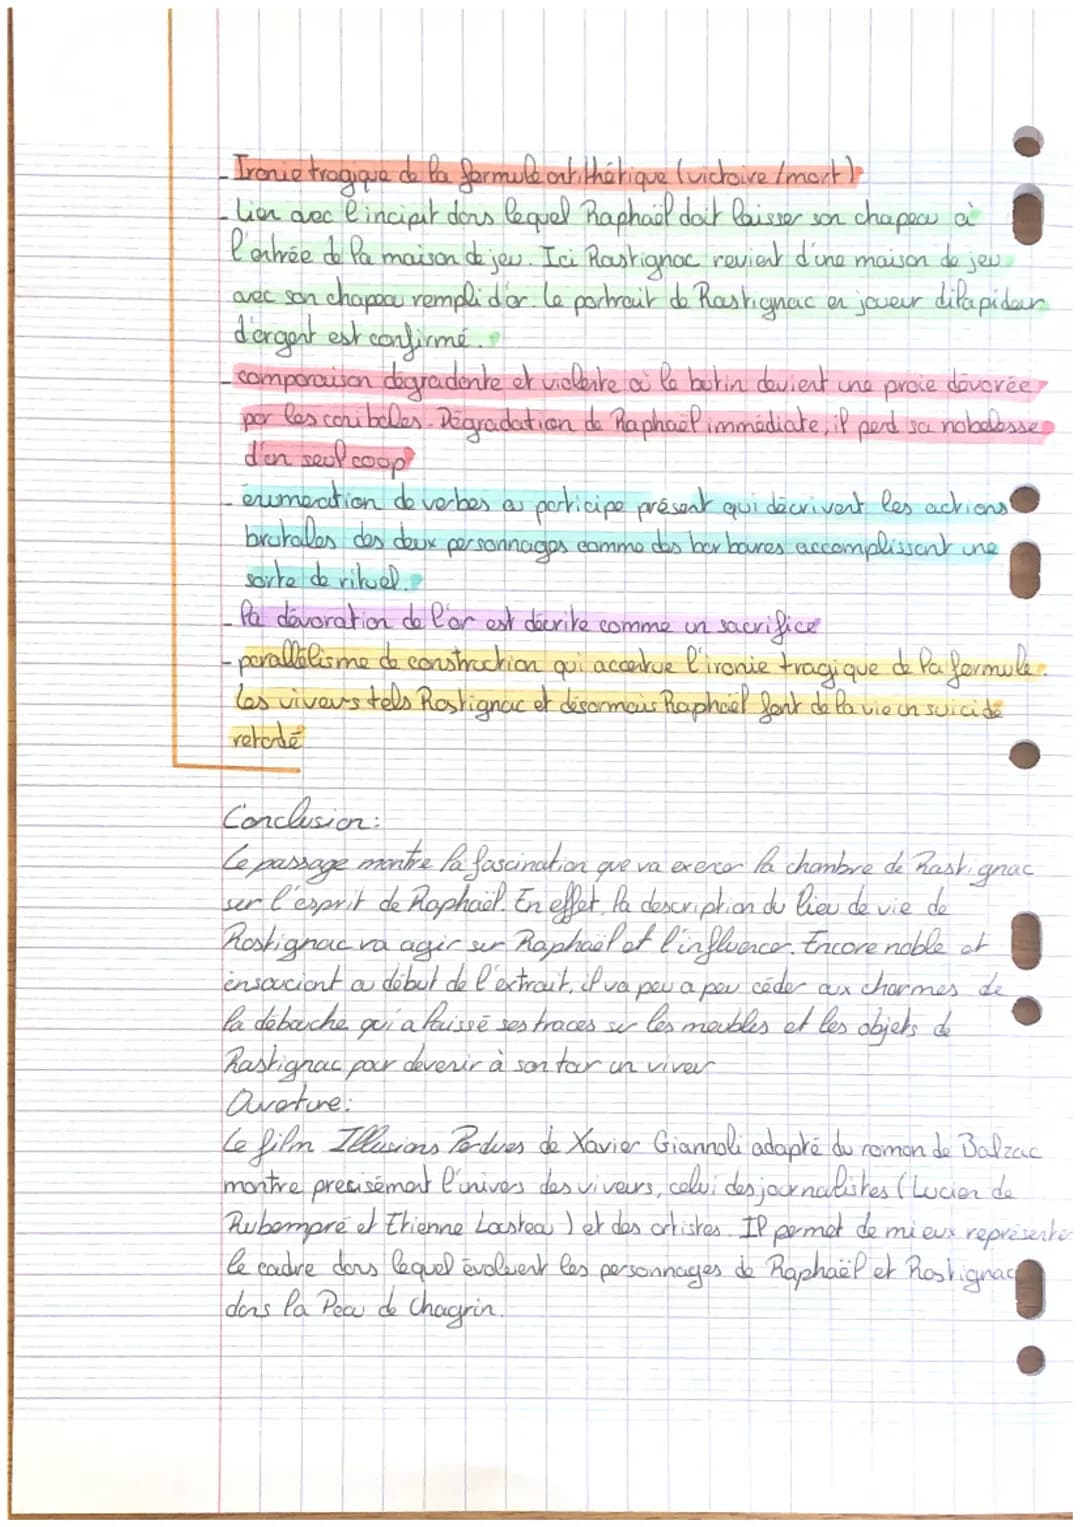 - Ironie tragique de la formule antithétique (victoire / mort)
- lien avec l'incipit dans lequel Raphaël doit laisser son chapeau à
l'entrée de la maison de jeu. Ici Rastignac revient d'une maison de jeu
avec son chapeau rempli d'or. le portrait de Rastignac en joueur dilapideur
d'argent est confirmé.
- comparaison dégradante et violente où le butin devient une proie dévorée
par les canibales. Dégradation de Raphaël immédiate, il perd sa nobelesse
d'un seul coop
- énumération de verbes au participe présent qui décrivent les actions
brutales des deux personnages comme des barbares accomplissant une
sorte de rituel.
- la dévoration de l'or est décrite comme un sacrifice
- parallélisme de construction qui accentue l'ironie tragique de la formule.
les viveurs tels Rastignac et désormais Raphaël font de la vie un suicide
retardé
Conclusion:
Le passage montre la fascination que va exercer la chambre de Rastignac
sur l'esprit de Raphaël. En effet, la description du lieu de vie de
Rastignac va agir sur Raphaël et l'influencer. Encore noble et
insouciant au début de l'extrait, il va peu a peu céder aux charmes de
la débauche qui a laissé ses traces sur les meubles et les objets de
Rastignac pour devenir à son tour un viveur
Ouverture:
Le film Illusions Perdues de Xavier Giannoli adapté du roman de Balzac
montre precisément l'univers des viveurs, celui des journalistes (Lucien de
Rubempré et Etienne Lousteau) et des artistes. Il permet de mieux représenter
le cadre dans lequel évoluent les personnages de Raphaël et Rastignac
dans la Peau de Chagrin.